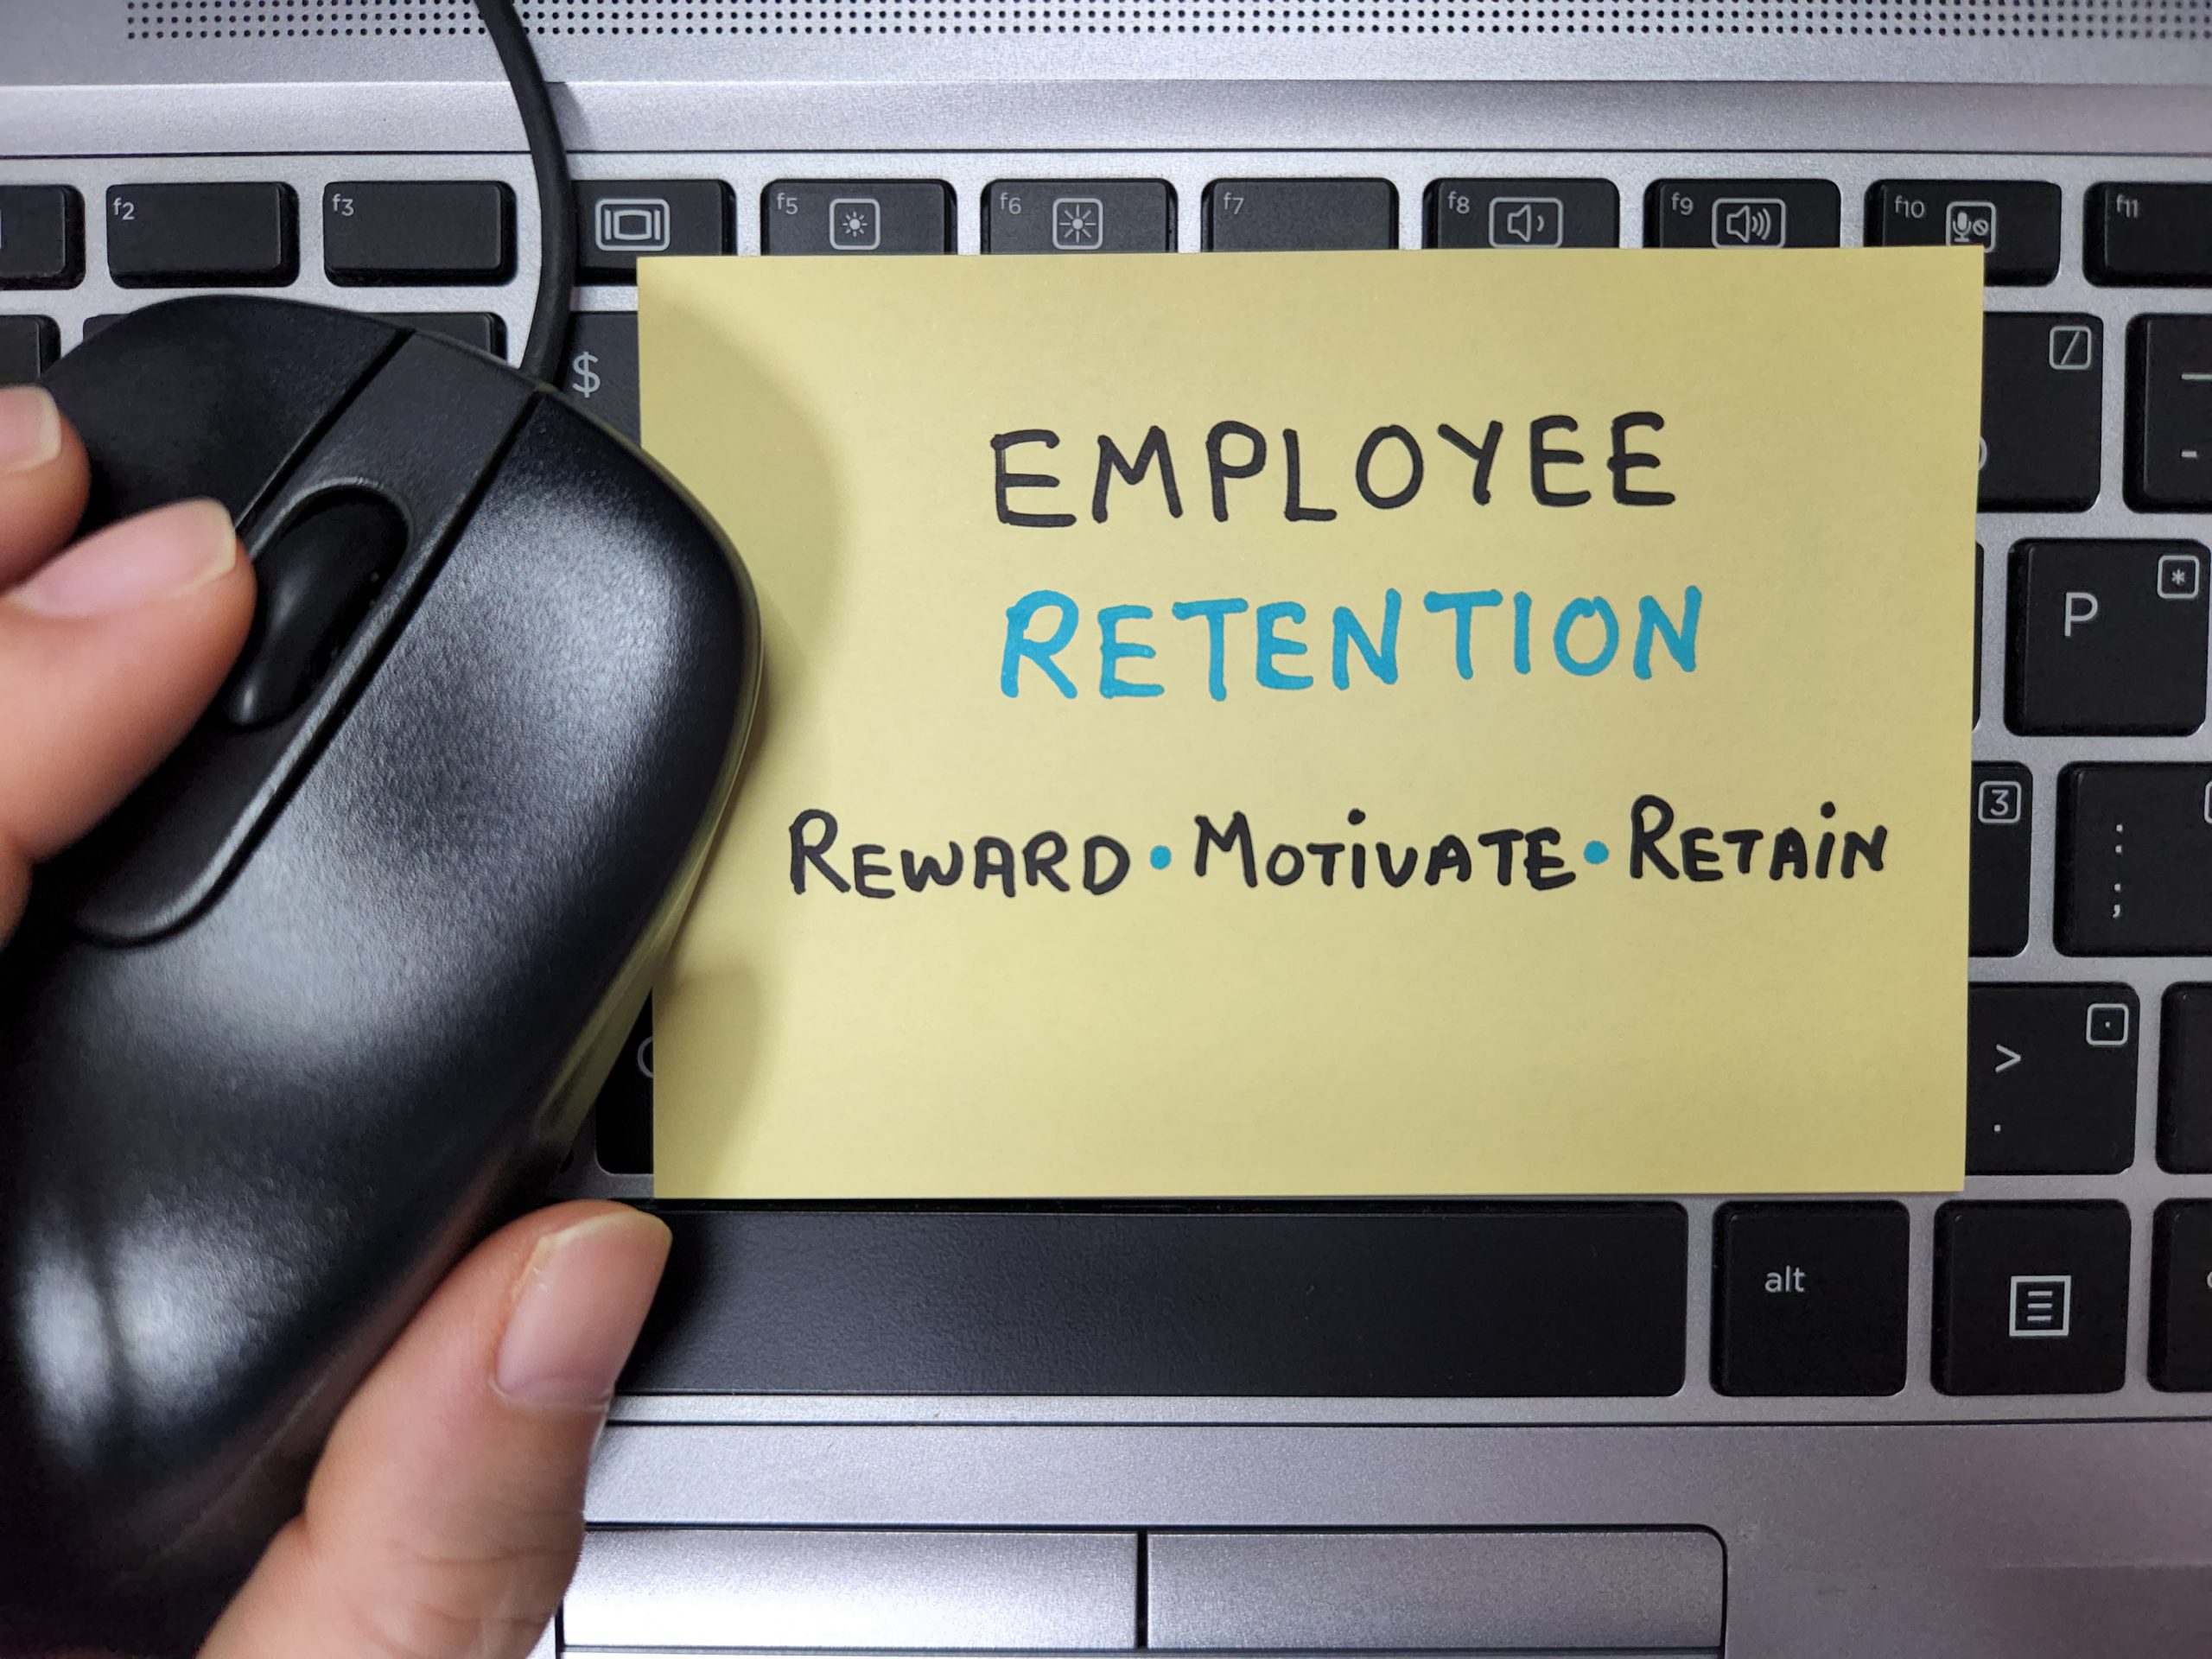 f2 f3 f5 f6 f7 f8 f9 f10 f11
$
EMPLOYEE
RETENTION
P *
REWARD • MOTIVATE • RETAIN
3 : ;
> .
alt